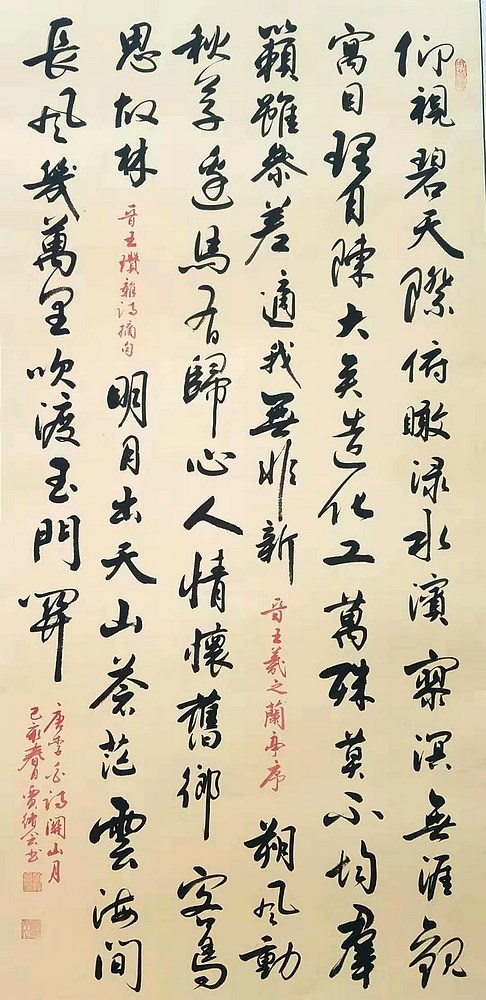 仰視碧天際俯瞰淥水濱寥溟無涯觀
寓目理自陳大矣造化工萬殊莫不均羣
籟雖參差適我無非新 晋王羲之蘭亭序 朔風動
秋草邊馬有歸心人情懷舊鄉客鳥
思故林 晋王瓚雜詩摘句 明月出天山蒼茫雲海間
長風幾萬里吹渡玉門關
唐李白詩關山月
己亥春月賈书